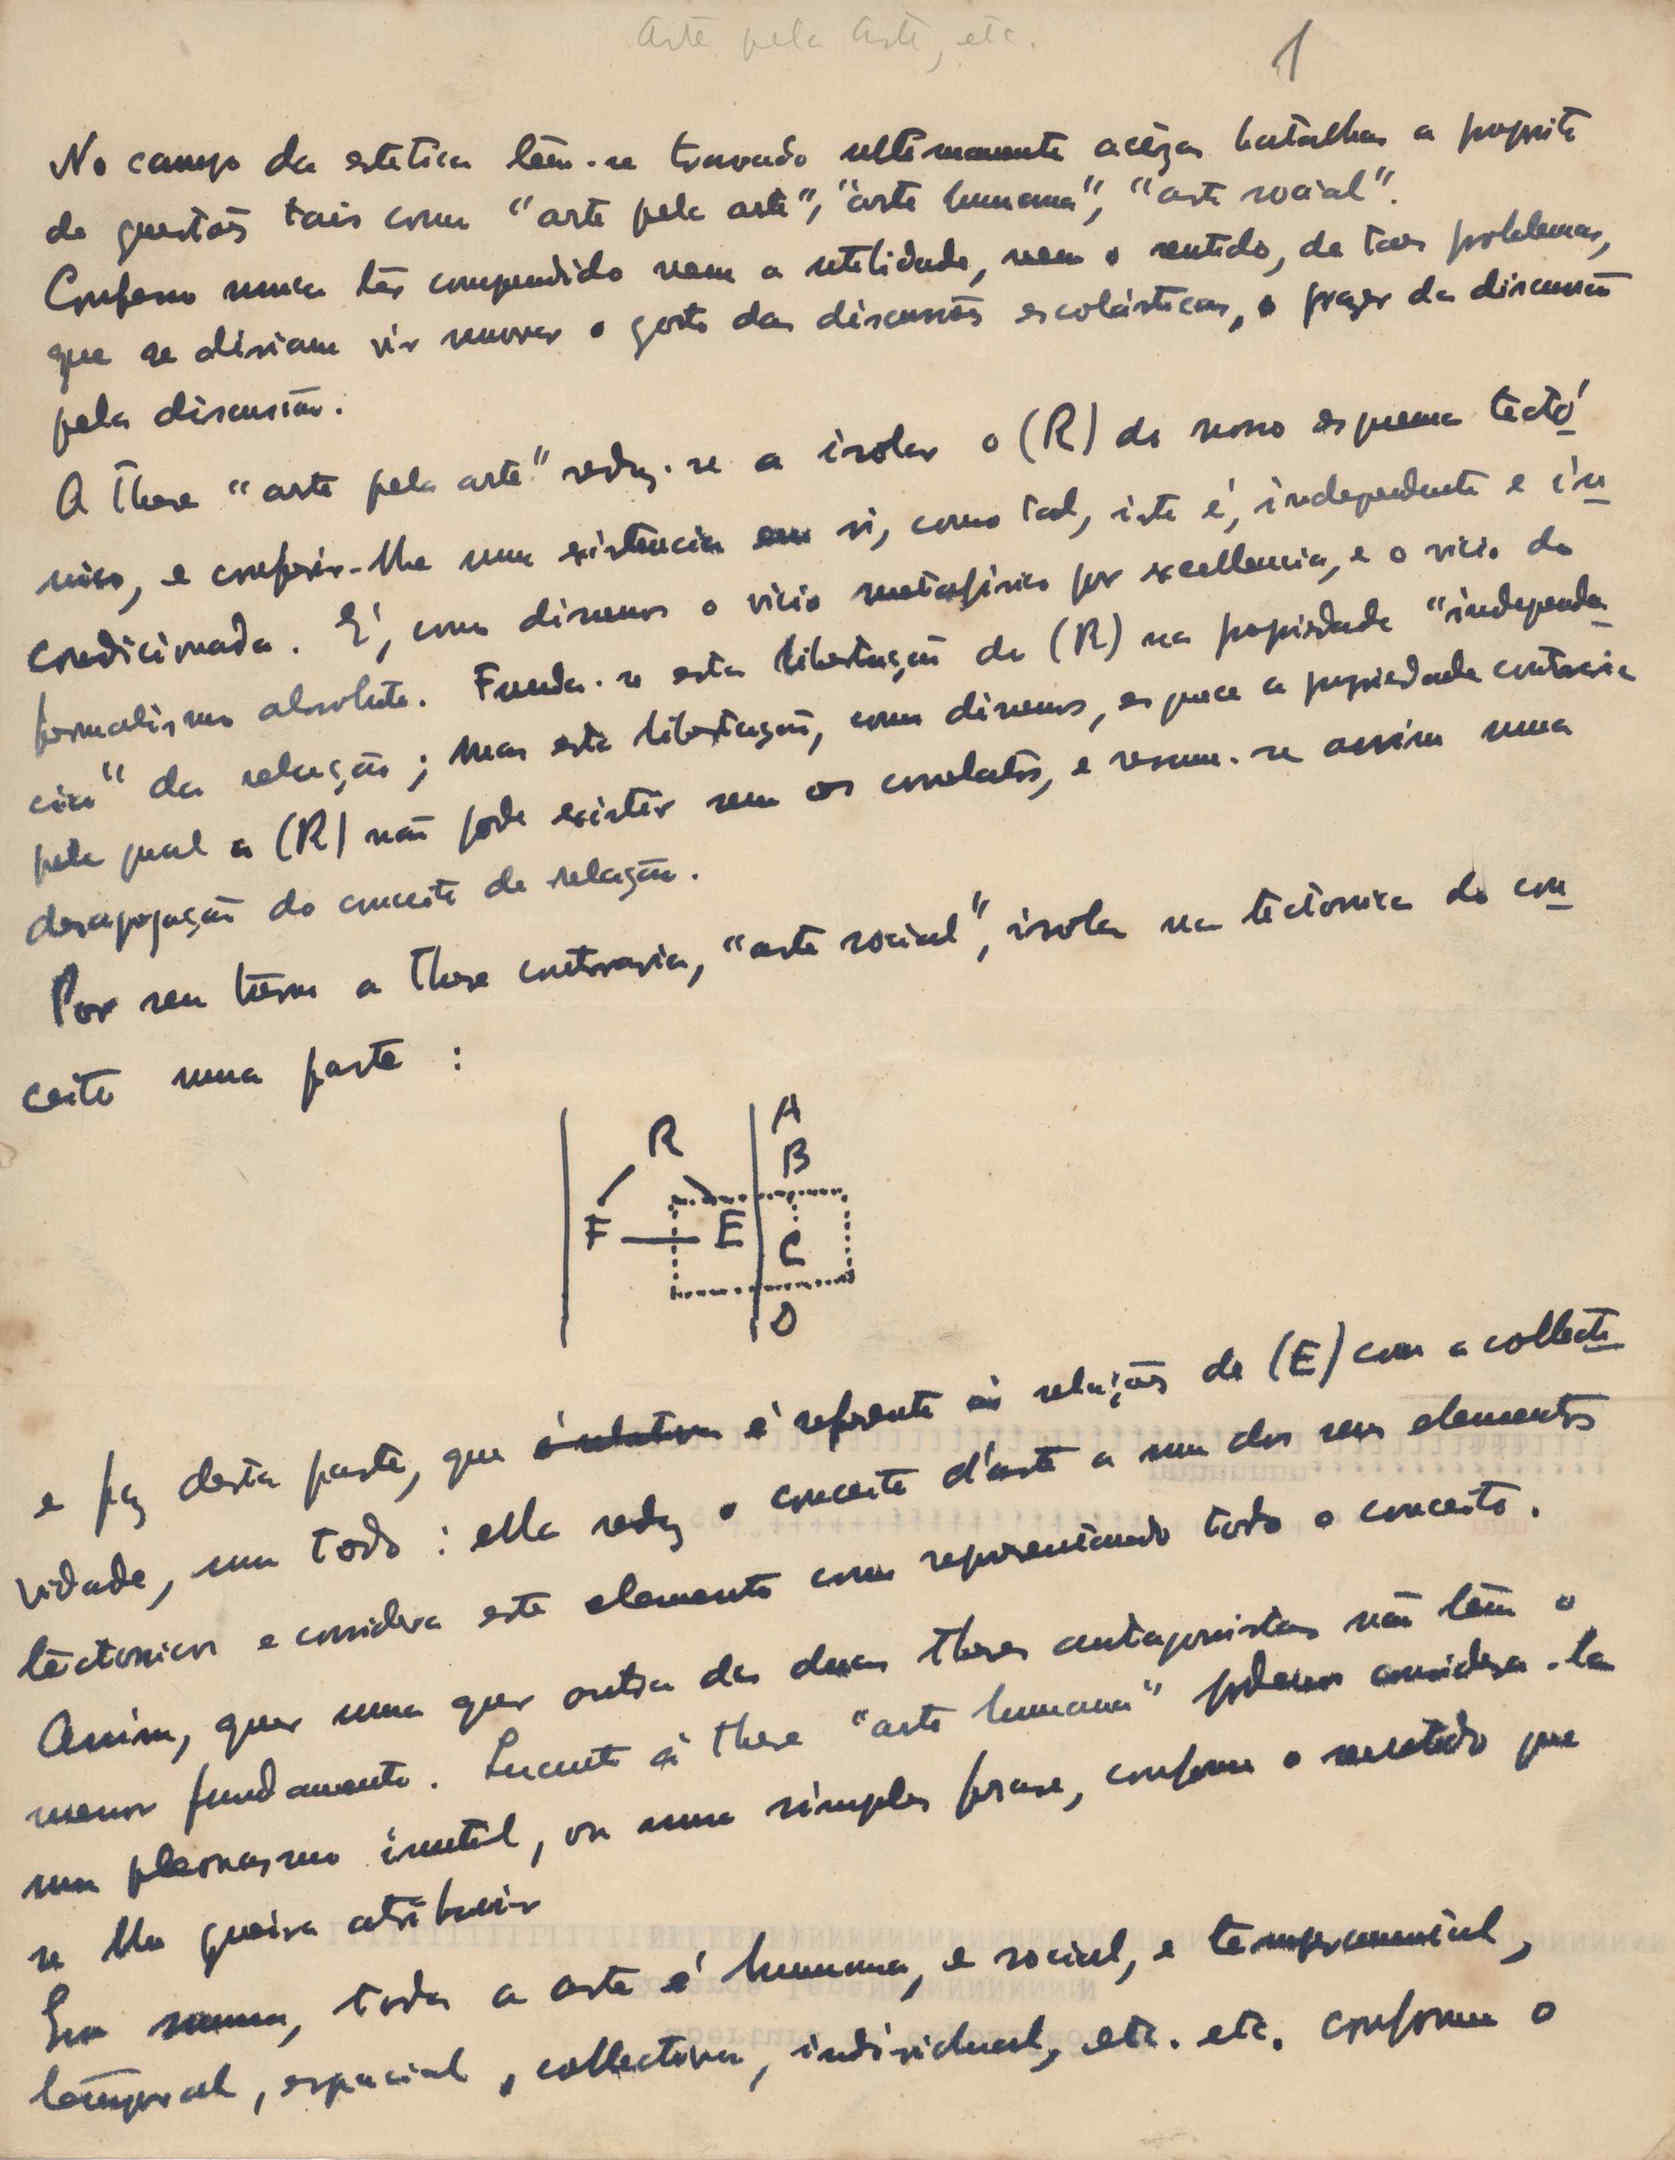 Arte pela Arte, etc.
1
No campo da estetica têm-se travado ultimamente acêzas batalhas a proposito
de questões tais como "arte pela arte", "arte humana", "arte social".
Confesso nunca ter comprendido nem a utilidade, nem o sentido, de taes problemas,
que se diriam vir renovar o gosto das discussões escolásticas, o prazer da discussão
pela discussão.
A these "arte pela arte" reduz-se a isolar o (R) do nosso esquema tectó
nico, e conferir-lhe uma existencia em si, como tal, isto é, independente e in
condicionada. É, como dissemos o vicio metafisico por excellencia, e o vicio do
formalismo absoluto. Funda-se esta libertação de (R) na propriedade "independen
cia" da relação; mas esta libertação, como dissemos, esquece a propriedade contraria
pela qual a (R) não pode existir sem os correlatos, e resume-se assim numa
desapropiação do conceito de relação.
Por seu turno a these contraria, "arte social", isola na tectonica do con
ceito uma parte :
R
A
B
F
E
C
D
e faz desta parte, que é relativa é referente ás relações de (E) com a collecti
vidade, um todo : ella reduz o conceito d'arte a um dos seus elementos
tectonicos e considera este elemento como representando todo o conceito.
Assim, quer uma quer outra das duas theses antagonistas não têm o
menor fundamento. Enquanto á these "arte humana" podemos considera-la
um pleonasmo inutil, ou uma simples frase, conforme o sentido que
se lhe queira atribuir
Em summa, toda a arte é humana, e social, e temperamental,
temporal, espacial, collectiva, individual, etc. etc. conforme o